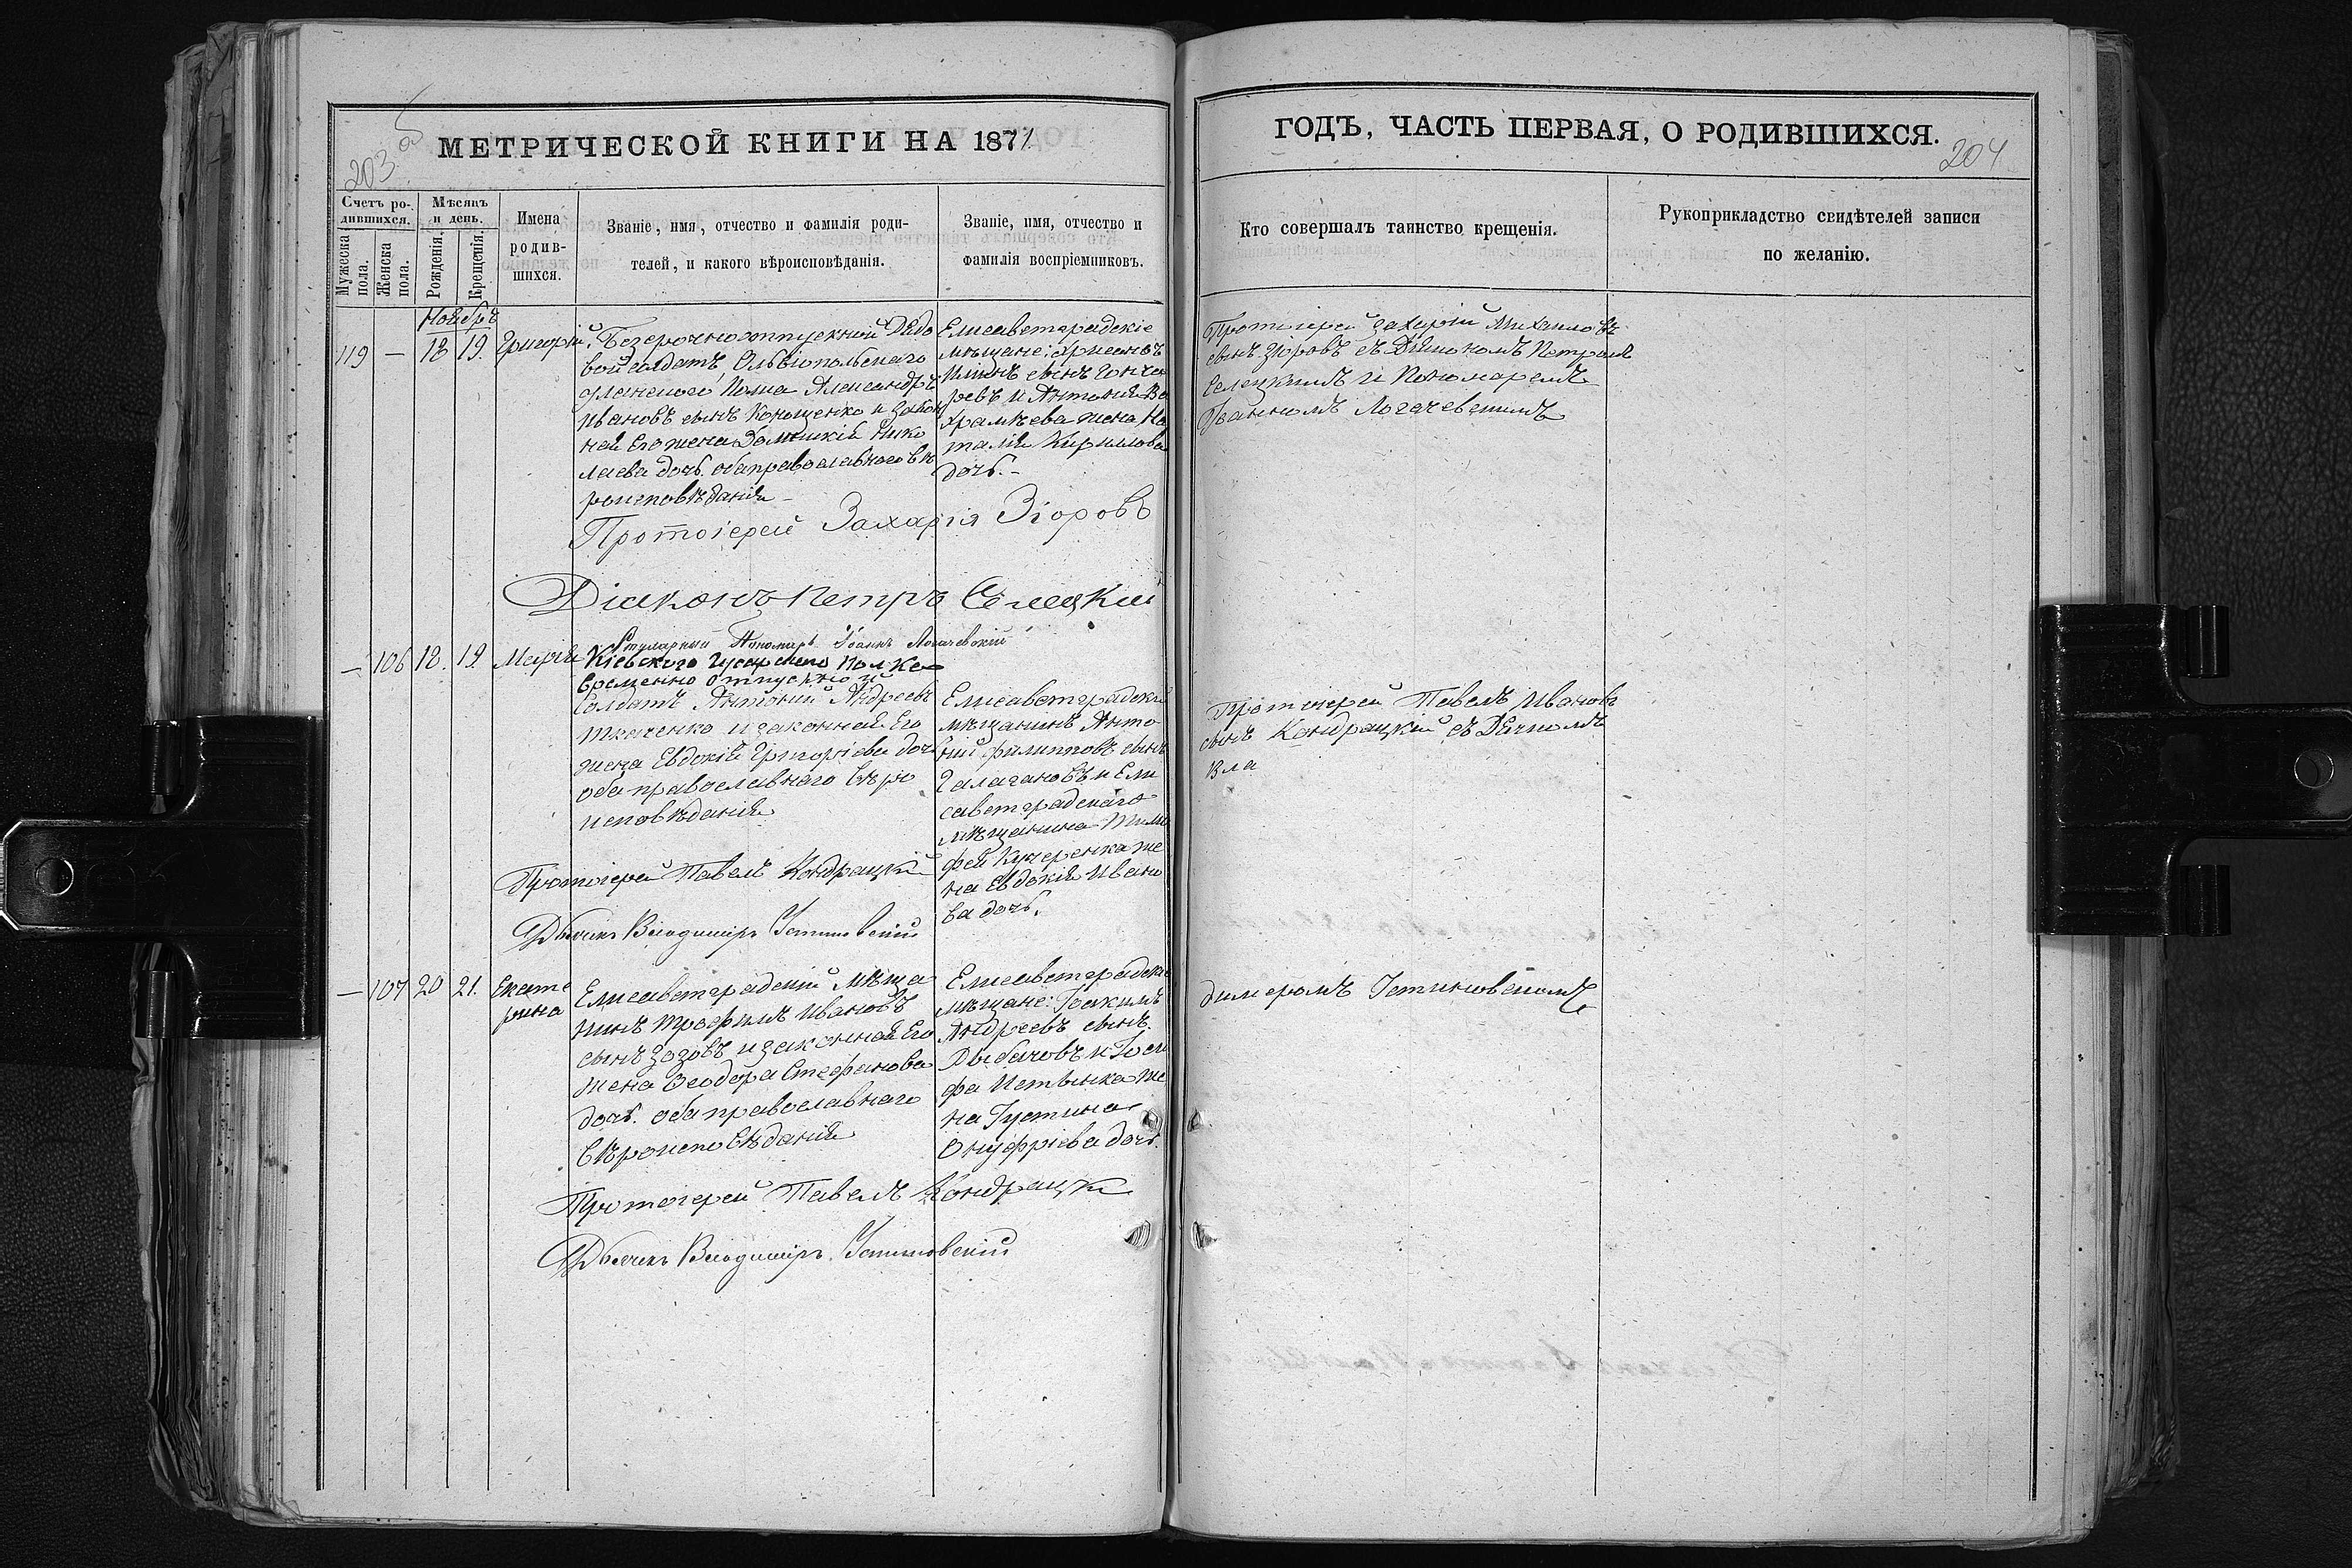 203 об
МЕТРИЧЕСКОЙ КНИГИ НА 1871
Счетъ ро-
дившихся.
Мужеска
пола.
Женска
пола.
Мѣсяцъ
и день.
Рожденія.
Крещенія.
Имена
родив-
шихся.
Званіе, имя, отчество и фамилія роди-
телей, и какого вѣроисповѣданія.
Званіе, имя, отчество и
фамилія воспріемниковъ.
Ноябрь
119 — 18 19. Григорій.
Безсрочноотпускной Рядо
вой солдатъ, Ольвіопольскаго
Уланскаго Полка Александръ
Ивановъ сынъ Конощенко и закон
ная его жена Домникія Нико
лаева дочь. оба православного вѣ
роисповѣданія —
Елисаветградскіе
мѣщане:
Илiинъ сынъ Гонча
ровъ и Антонія Ва
храмѣева жена На
талія Кириллова
дочь. —
Протоіерей Захарія Зіоровъ
Діаконъ Петръ Селецкій
Пономарь Іоаннъ Логачевскій
— 106 18. 19. Марія
Кіевского Гусарского Полка
временно отпускной
Солдатъ Антоній Андреевъ
Ткаченко и законная Его
жена Евдокія Григоріева дочь
оба православнаго вѣро
исповѣданія
Елисаветградскій
мѣщанинъ Анто
ній Филипповъ сынъ
Галагановъ и Ели
саветградскаго
мѣщанина Тимо
фея Кучеренка же
на Евдокія Ивано
ва дочь.
Протоіерей Павелъ Кондрацкій
Дьячекъ Владимиръ Устиновскій
— 107 20 21. Екате
рина
Елисаветградскій мѣща
нинъ Трофимъ Ивановъ
сынъ Зозовъ и законная Его
жена Ѳеодора Стефанова
дочь. оба православнаго
вѣроисповѣданія
Елисаветградскіе
мѣщане: Іоакимъ
Андреевъ сынъ
Рыбачовъ и Іоси
фа же
на Іустина
Онуфріева дочь.
Протоіерей Павелъ Кондрацкій
Дьячекъ Владимиръ Устиновскій
ГОДЪ, ЧАСТЬ ПЕРВАЯ, О РОДИВШИХСЯ.
204
Кто совершалъ таинство крещенія.
Рукоприкладство свидѣтелей записи
по желанію.
Протоіерей Захарій Михаиловъ
сынъ Зіоровъ съ Діакономъ Петромъ
Селецкимъ и Пономаремъ
Іоанномъ Логачевскимъ
Протоіерей Павелъ Ивановъ
сынъ Кондрацкій съ Дячкомъ
Вла
димеромъ Устиновскимъ